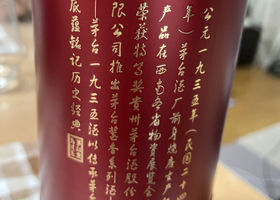 公元一九三五年（民国二十四
年）茅台酒厂前身烧房生产
产品在西南各省物资展览会
荣获特等奖贵州茅台酒股份
限公司推出茅台酱香系列酒
茅台一九三五酒以传承茅台
底蕴铭记历史经典